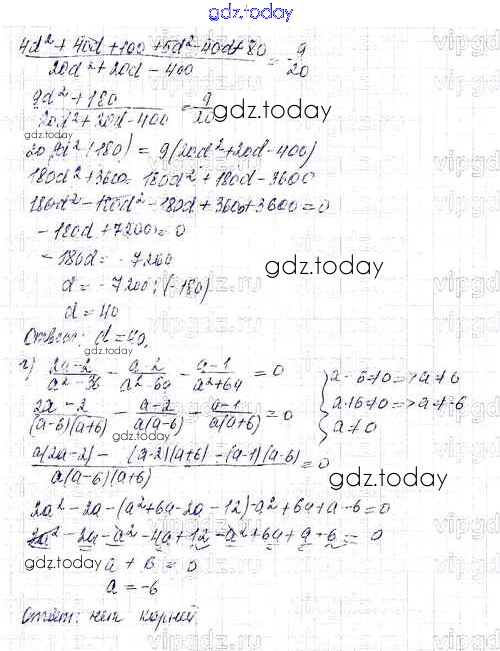 gdz.today
4d² + 40d + 100 + 5d² - 40d + 80 / 20d² + 20d - 400 = 9/20
9d² + 180 / 20d² + 20d - 400 = 9/20
gdz.today
20(9d² + 180) = 9(20d² + 20d - 400)
180d² + 3600 = 180d² + 180d - 3600
180d² - 180d² - 180d + 3600 + 3600 = 0
-180d + 7200 = 0
-180d = -7200
gdz.today
d = -7200 : (-180)
d = 40
Ответ: d = 40.
gdz.today
г) 2a-2 / a²-36 - a-2 / a²-6a - a-1 / a²+6a = 0
{ a-6≠0 => a≠6
2a-2 / (a-6)(a+6) - a-2 / a(a-6) - a-1 / a(a+6) = 0
a+6≠0 => a≠-6
a≠0
gdz.today
a(2a-2) - (a-2)(a+6) - (a-1)(a-6) / a(a-6)(a+6) = 0
gdz.today
2a² - 2a - (a² + 6a - 2a - 12) - a² + 6a + a - 6 = 0
2a² - 2a - a² - 4a + 12 - a² + 6a + a - 6 = 0
gdz.today
a + 6 = 0
a = -6
Ответ: нет корней.
gdz.today